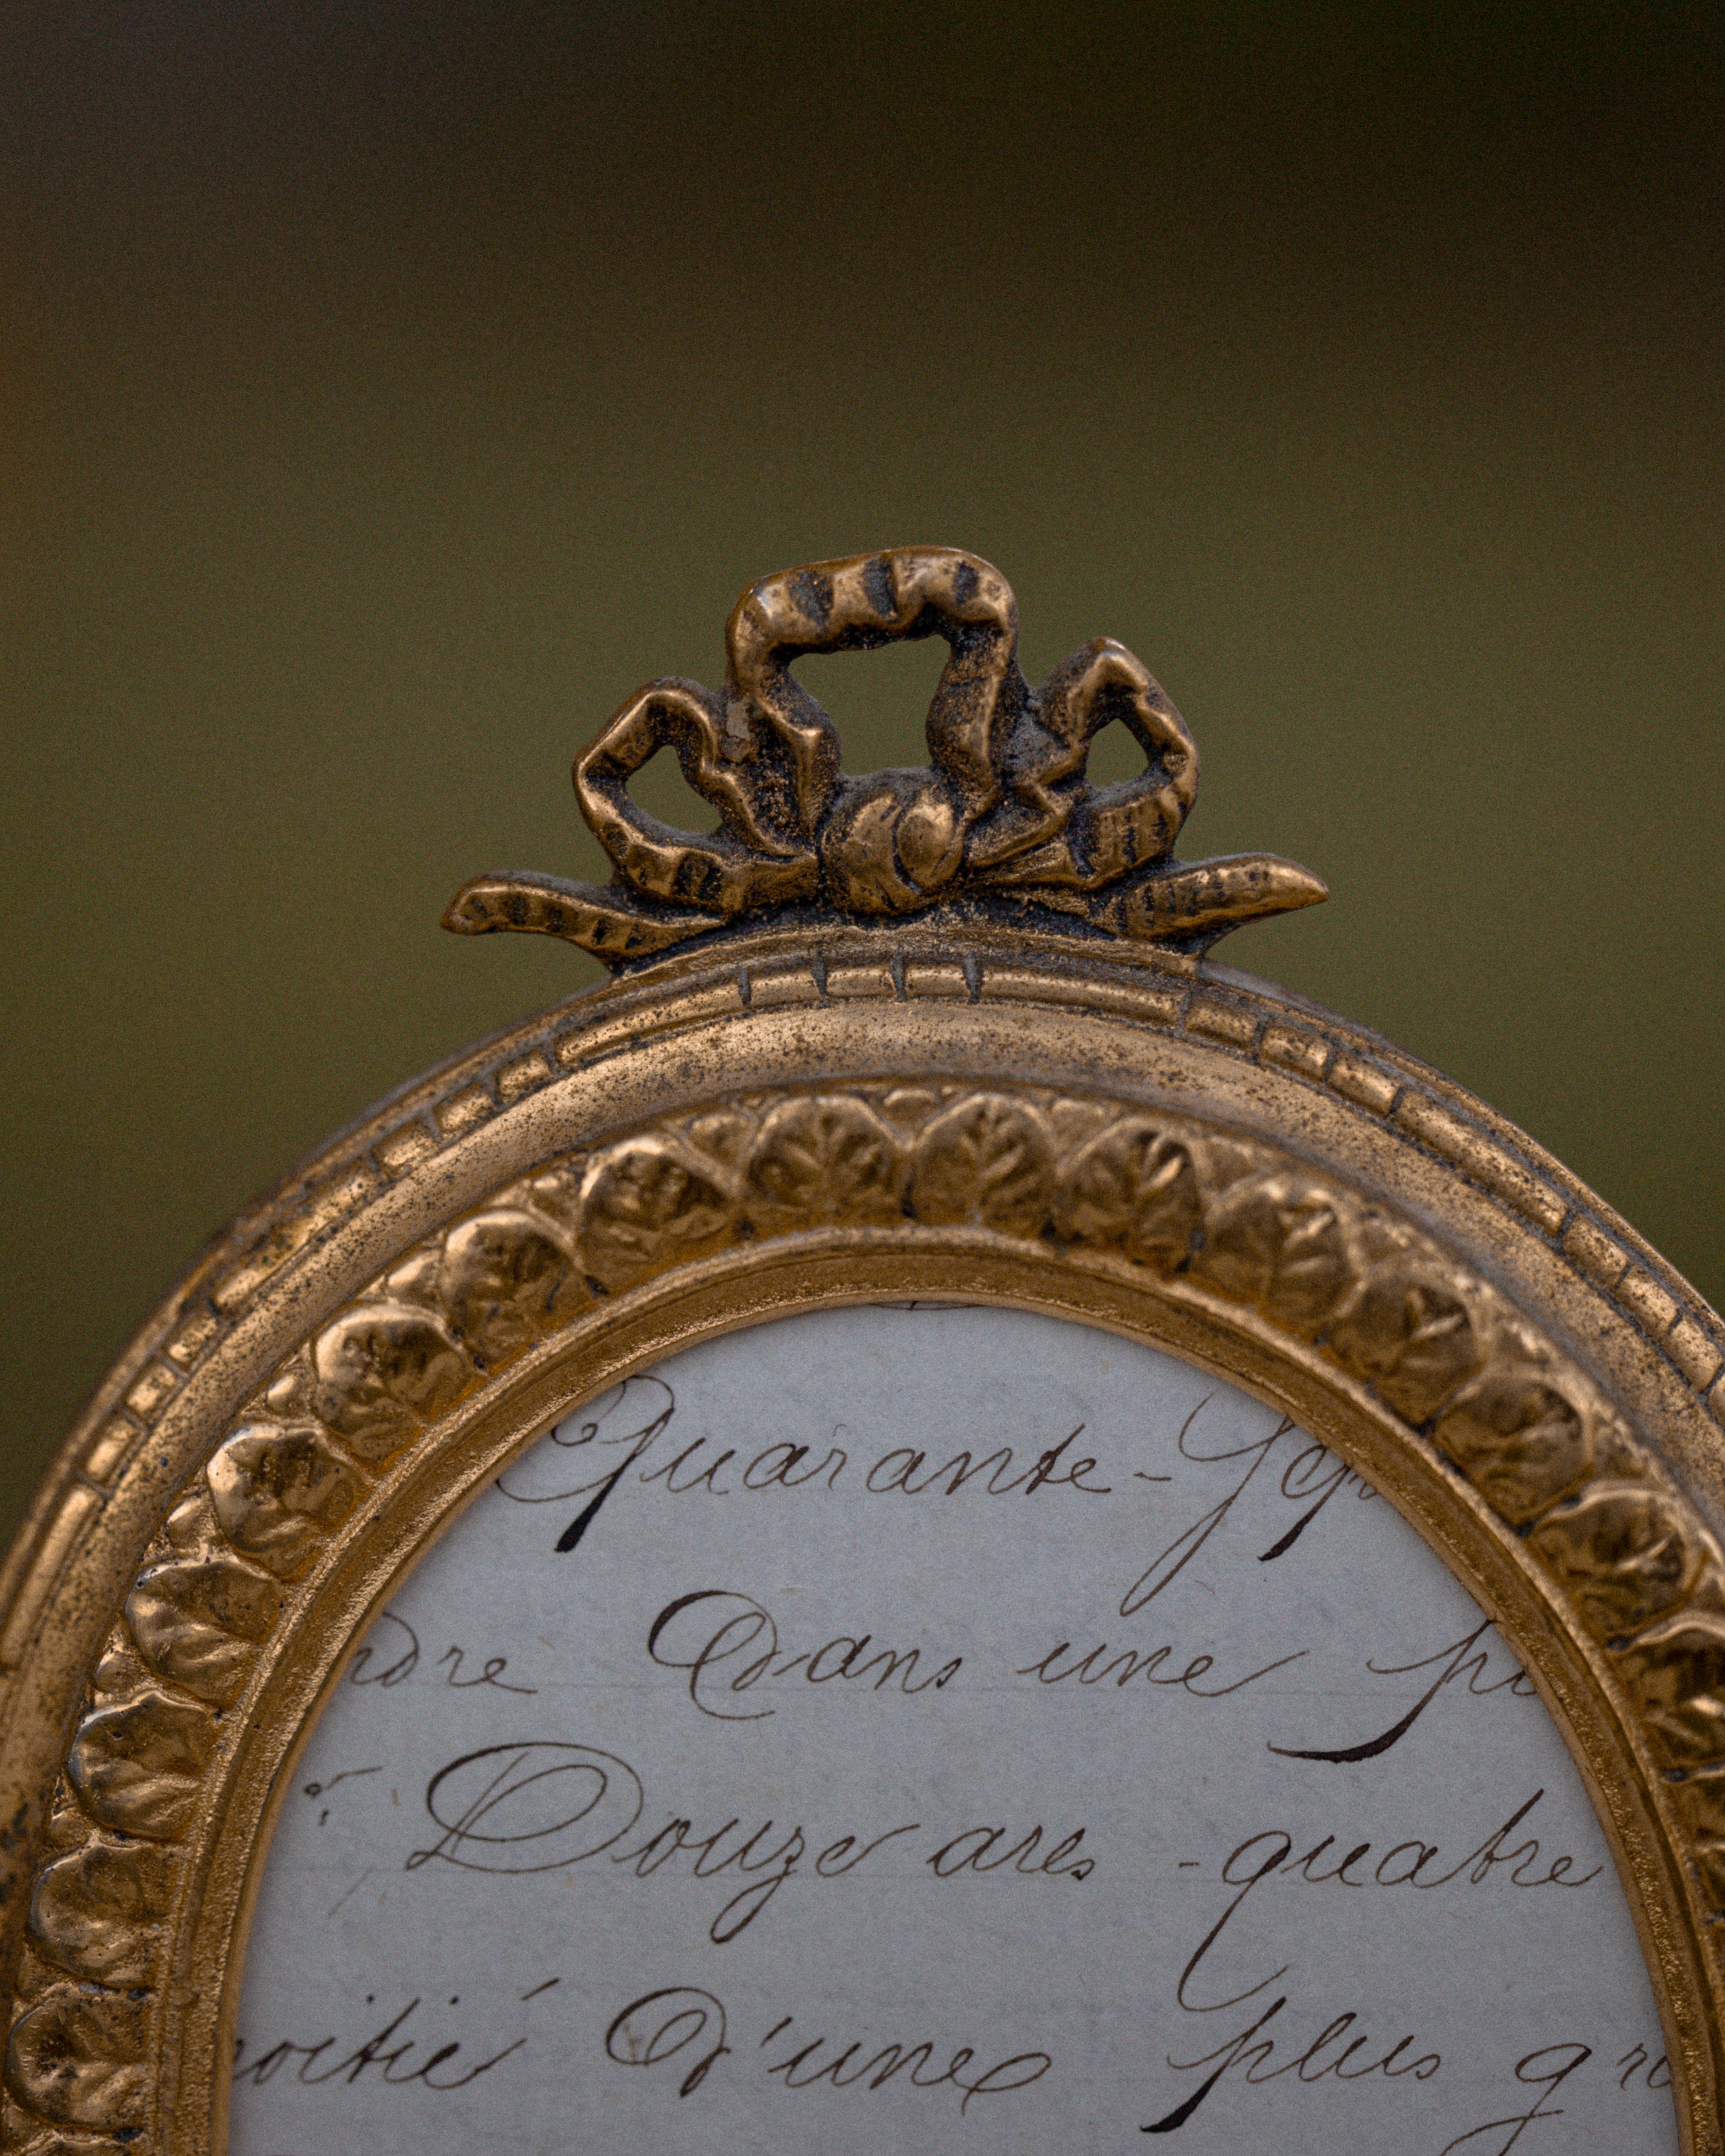 Quarante-Sep
ndre Dans une
Douze ares -quatre
oitié D'une plus gr